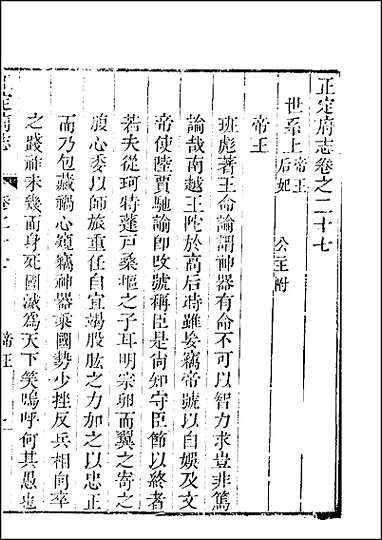 正定府志卷之二十七
世系上 帝王 后妃 公主附
帝王
班彪著王命論謂神器有命不可以智力求豈非篤
論哉南越王陀於高后時雖妄竊帝號以自娛及文
帝使陸賈馳諭即改號稱臣是尙知守臣節以終者
若夫從珂特蓬戸桑樞之子耳明宗卵而翼之寄之
腹心委以師旅重任自宜竭股肱之力加之以忠正
而乃包藏禍心窺竊神器乘國勢少挫反兵相向卒
之踐祚未幾而身死國滅爲天下笑嗚呼何其愚也
正定府志
卷二十七
帝王
一